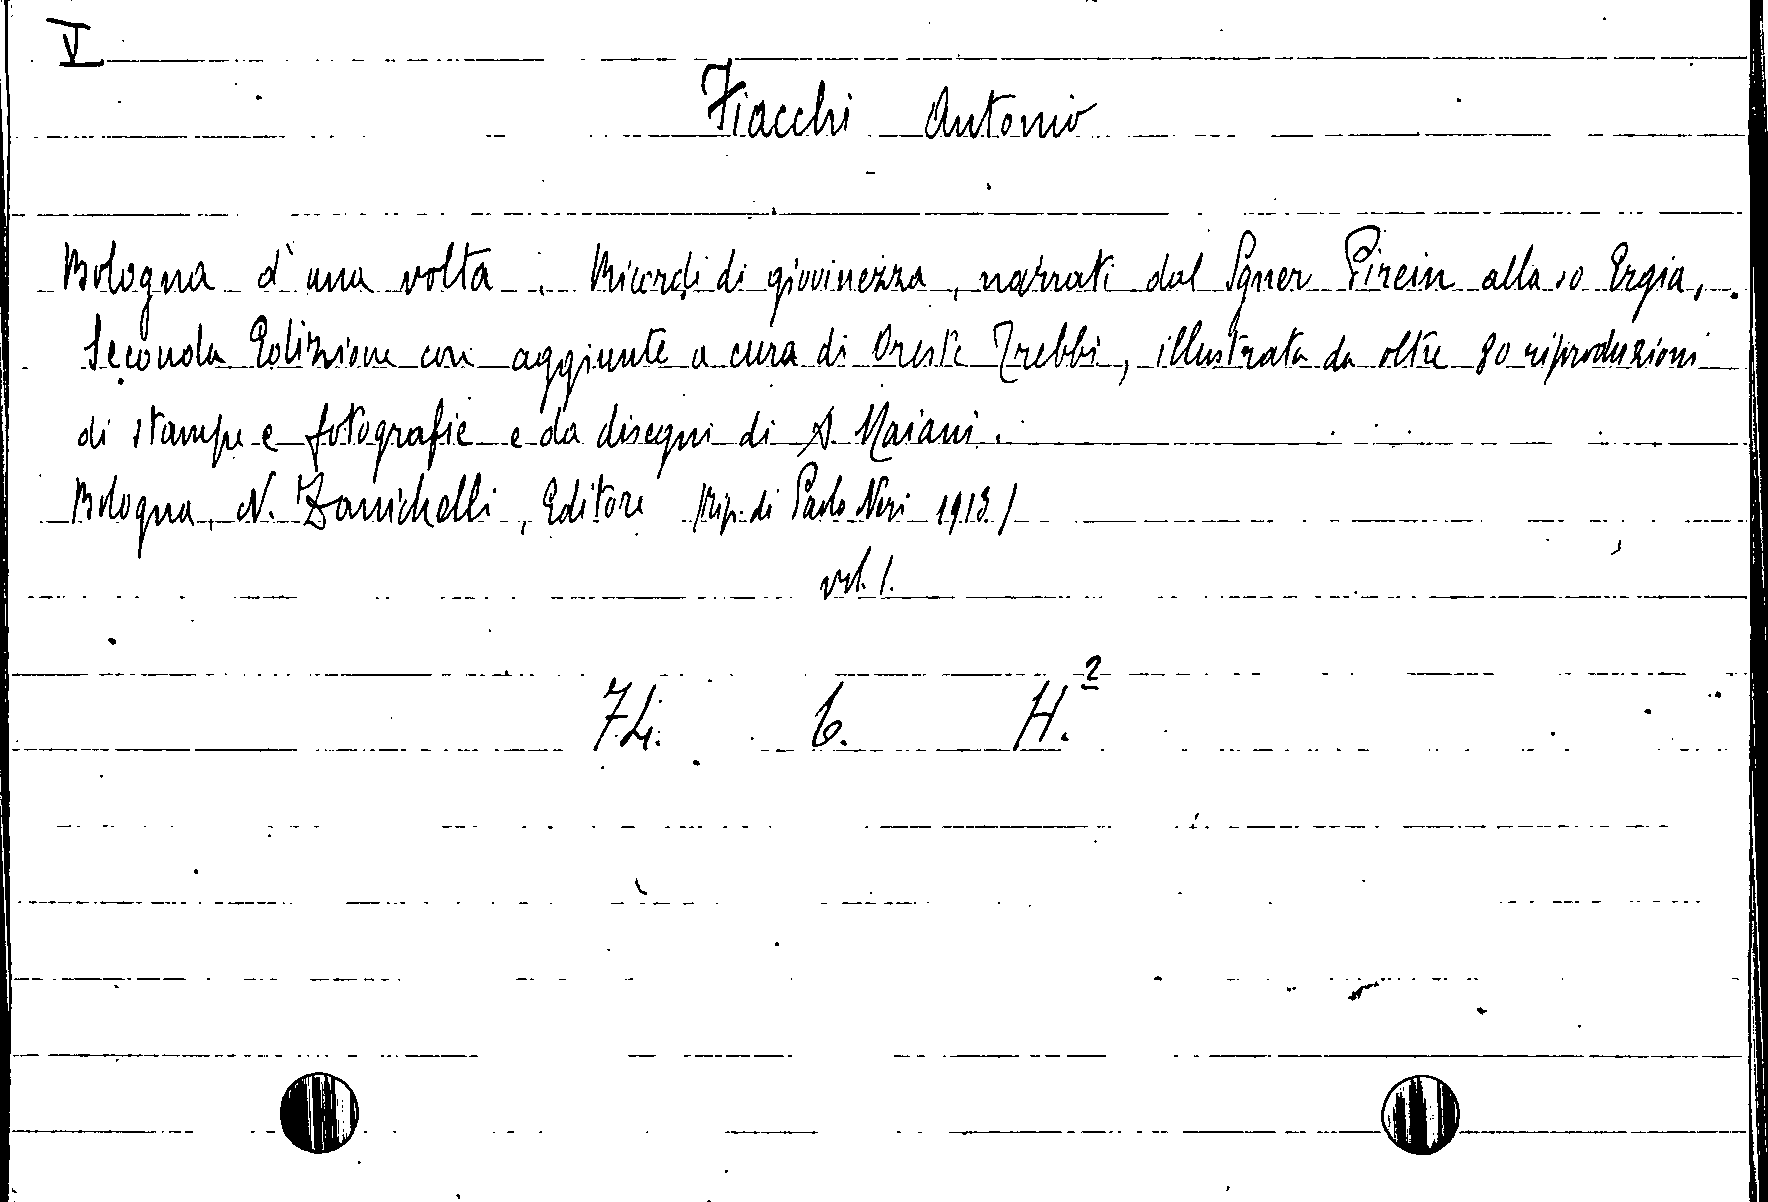 V
Fiacchi Antonio
Bologna d'una volta. Ricordi di giovinezza, narrati dal Sgner Pirein alla so Ergia,.
Seconda Edizione con aggiunte a cura di Oreste Trebbi, illustrata da oltre 80 riproduzioni
di stampe e fotografie e da disegni di A. Maiani.
Bologna, N. Zanichelli, Editore /Tip. di Paolo Neri 1913/
vol. 1.
74. 6. H.²